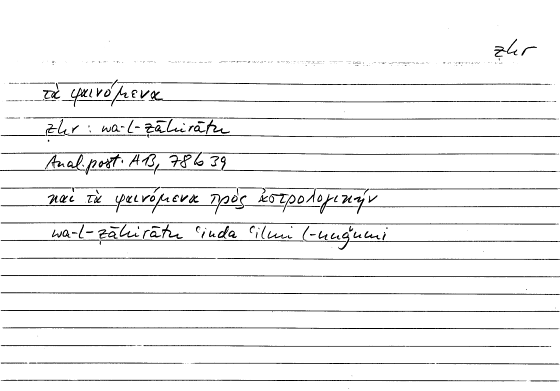 ẓhr
τὰ φαινόμενα
ẓhr : wa-l-ẓāhirātu
Anal. post. A13, 78b39
καὶ τὰ φαινόμενα πρὸς ἀστρολογικήν
wa-l-ẓāhirātu ʿinda ʿilmi l-nuǧūmi